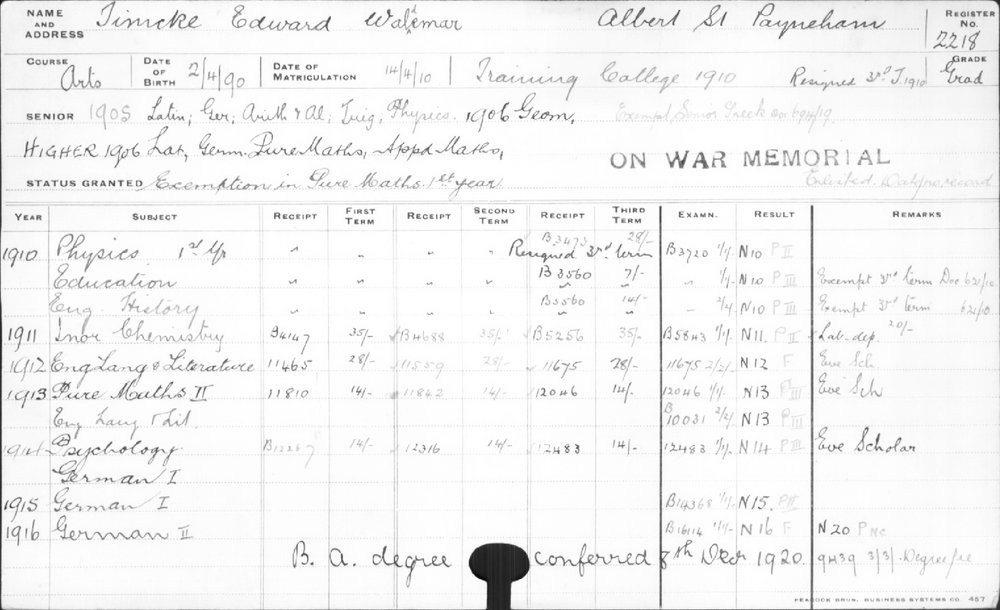 NAME AND ADDRESS Timcke Edward Waldemar Albert St Payneham REGISTER No. 2218
COURSE Arts DATE OF BIRTH 2/4/90 DATE OF MATRICULATION 14/4/10 Training College 1910 Resigned 3rd T. 1910 GRADE Grad
SENIOR 1905 Latin, Ger, Arith & Al, Trig, Physics. 1906 Geom, Exempt Senior Greek
HIGHER 1906 Lat, Germ. Pure Maths, Appd Maths,
ON WAR MEMORIAL
STATUS GRANTED Exemption in Pure Maths. 1st year Enlisted. Date no record
YEAR SUBJECT RECEIPT FIRST TERM RECEIPT SECOND TERM RECEIPT THIRD TERM EXAMN. RESULT REMARKS
1910 Physics 1st Yr " " " " B3473 28/- B3720 1/1. N10 P II
Resigned 3rd term
Education " " " " B3560 7/- " 1/1. N10 P III Exempt 3rd term Doc 621/10
Eng. History " " " " B3560 14/- " 2/4 N10 P III Exempt 3rd term 621/10
1911 Inor Chemistry B4147 35/- B4688 35/- B5256 35/- B5843 1/1. N11. P II Lab. dep. 20/-
1912 Eng Lang & Literature 11465 28/- 11559 28/- 11675 28/- 11675 2/2/- N12 F Eve Sch
1913 Pure Maths II 11810 14/- 11842 14/- 12046 14/- 12046 1/1. N13 P III Eve Sch
Eng Lang & Lit. B10031 2/2/- N13 P III
1914 Psychology 14/- 12316 14/- 12483 14/- 12483 1/1. N14 P III Eve Scholar
German I
1915 German I B14368 1/1/- N15. P II
1916 German II B16114 1/1/- N16 F N20 P NC
B. A. degree conferred 8th Decr 1920. 9439 3/3/- Degree fee
PEACOCK BROS. BUSINESS SYSTEMS CO. 457